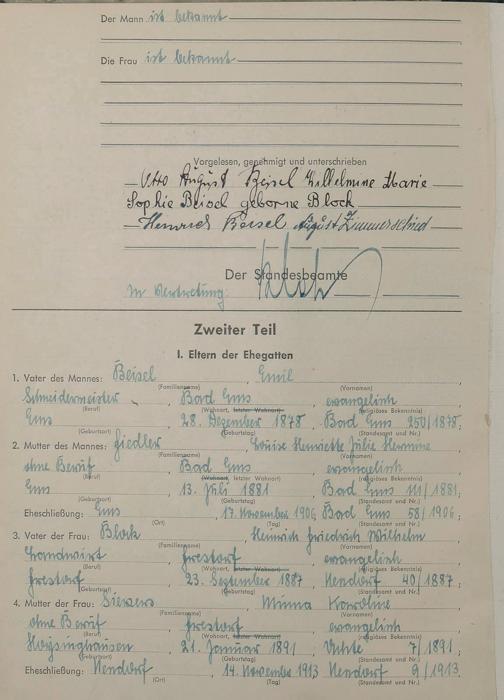 Der Mann ist bekannt
Die Frau ist bekannt
Vorgelesen, genehmigt und unterschrieben
Otto August Beisel Wilhelmine Marie
Sophie Beisel geborne Block
Heinrich Beisel August Zimmerschied
Der Standesbeamte
In Vertretung:
Zweiter Teil
I. Eltern der Ehegatten
1. Vater des Mannes: Beisel, Emil,
(Familienname) (Vornamen)
Schneidermeister, Bad Ems, evangelisch
(Beruf) (Wohnort, letzter Wohnort) (religiöses Bekenntnis)
Ems, 28. Dezember 1875, Bad Ems 250/1875.
(Geburtsort) (Geburtstag) (Standesamt und Nr.)
2. Mutter des Mannes: Fiedler, Louise Henriette Julie Hermine
(Familienname) (Vornamen)
ohne Beruf, Bad Ems, evangelisch
(Beruf) (Wohnort, letzter Wohnort) (religiöses Bekenntnis)
Ems, 13. Juli 1881, Bad Ems 111/1881,
(Geburtsort) (Geburtstag) (Standesamt und Nr.)
Eheschließung: Ems, 17. November 1906, Bad Ems 58/1906.;
(Ort) (Tag) (Standesamt und Nr.)
3. Vater der Frau: Block, Heinrich Friedrich Wilhelm
(Familienname) (Vornamen)
Landwirt, Frestorf, evangelisch
(Beruf) (Wohnort, letzter Wohnort) (religiöses Bekenntnis)
Frestorf, 23. September 1887, Nendorf 40/1887.;
(Geburtsort) (Geburtstag) (Standesamt und Nr.)
4. Mutter der Frau: Siewers, Minna Karoline
(Familienname) (Vornamen)
ohne Beruf, Frestorf, evangelisch
(Beruf) (Wohnort, letzter Wohnort) (religiöses Bekenntnis)
Hoysinghausen, 21. Januar 1891, Uchte 7/1891,
(Geburtsort) (Geburtstag) (Standesamt und Nr.)
Eheschließung: Nendorf, 14. November 1913, Nendorf 9/1913.
(Ort) (Tag) (Standesamt und Nr.)